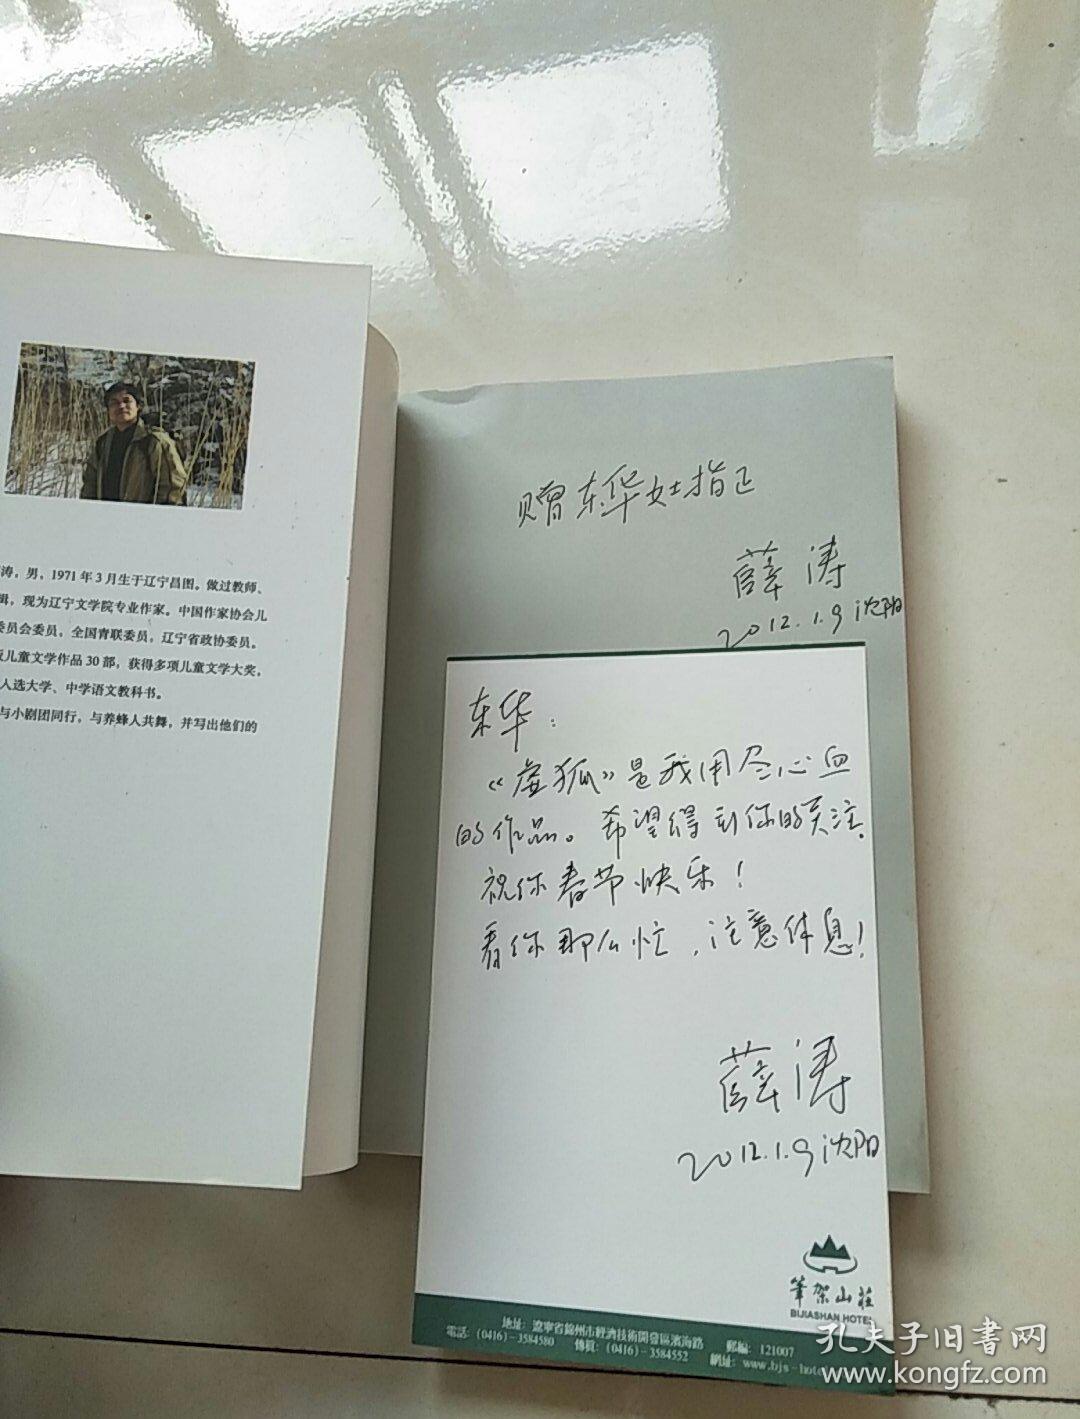 涛，男，1971年3月生于辽宁昌图。做过教师、
辑，现为辽宁文学院专业作家。中国作家协会儿
委员会委员，全国青联委员，辽宁省政协委员。
版儿童文学作品30部，获得多项儿童文学大奖，
人选大学、中学语文教科书。
与小剧团同行，与养蜂人共舞，并写出他们的
赠东华女士指正
薛涛
2012.1.9沈阳
东华：
《虚狐》是我用尽心血
的作品。希望得到你的关注.
祝你春节快乐！
看你那么忙，注意休息！
薛涛
2012.1.9沈阳
筆架山莊
BIJIASHAN HOTEL
地址：遼寧省錦州市經濟技術開發區濱海路 郵編：121007
電話：(0416)-3584580 傳真：(0416)-3584552 網址：www.bjs-hote
孔夫子旧书网
www.kongfz.com